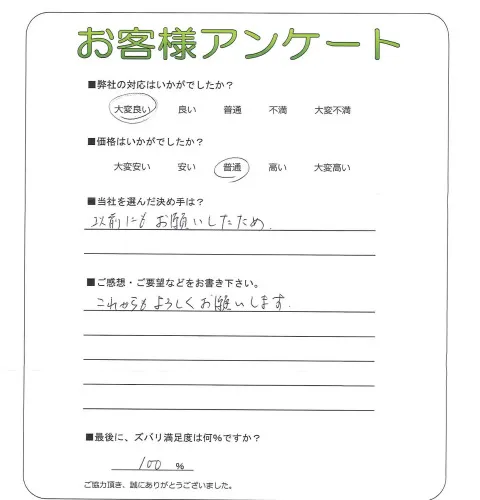 お客様アンケート
■弊社の対応はいかがでしたか？
大変良い 良い 普通 不満 大変不満
■価格はいかがでしたか？
大変安い 安い 普通 高い 大変高い
■当社を選んだ決め手は？
以前にもお願いしたため.
■ご感想・ご要望などをお書き下さい。
これからもよろしくお願いします.
■最後に、ズバリ満足度は何％ですか？
100 %
ご協力頂き、誠にありがとうございました。